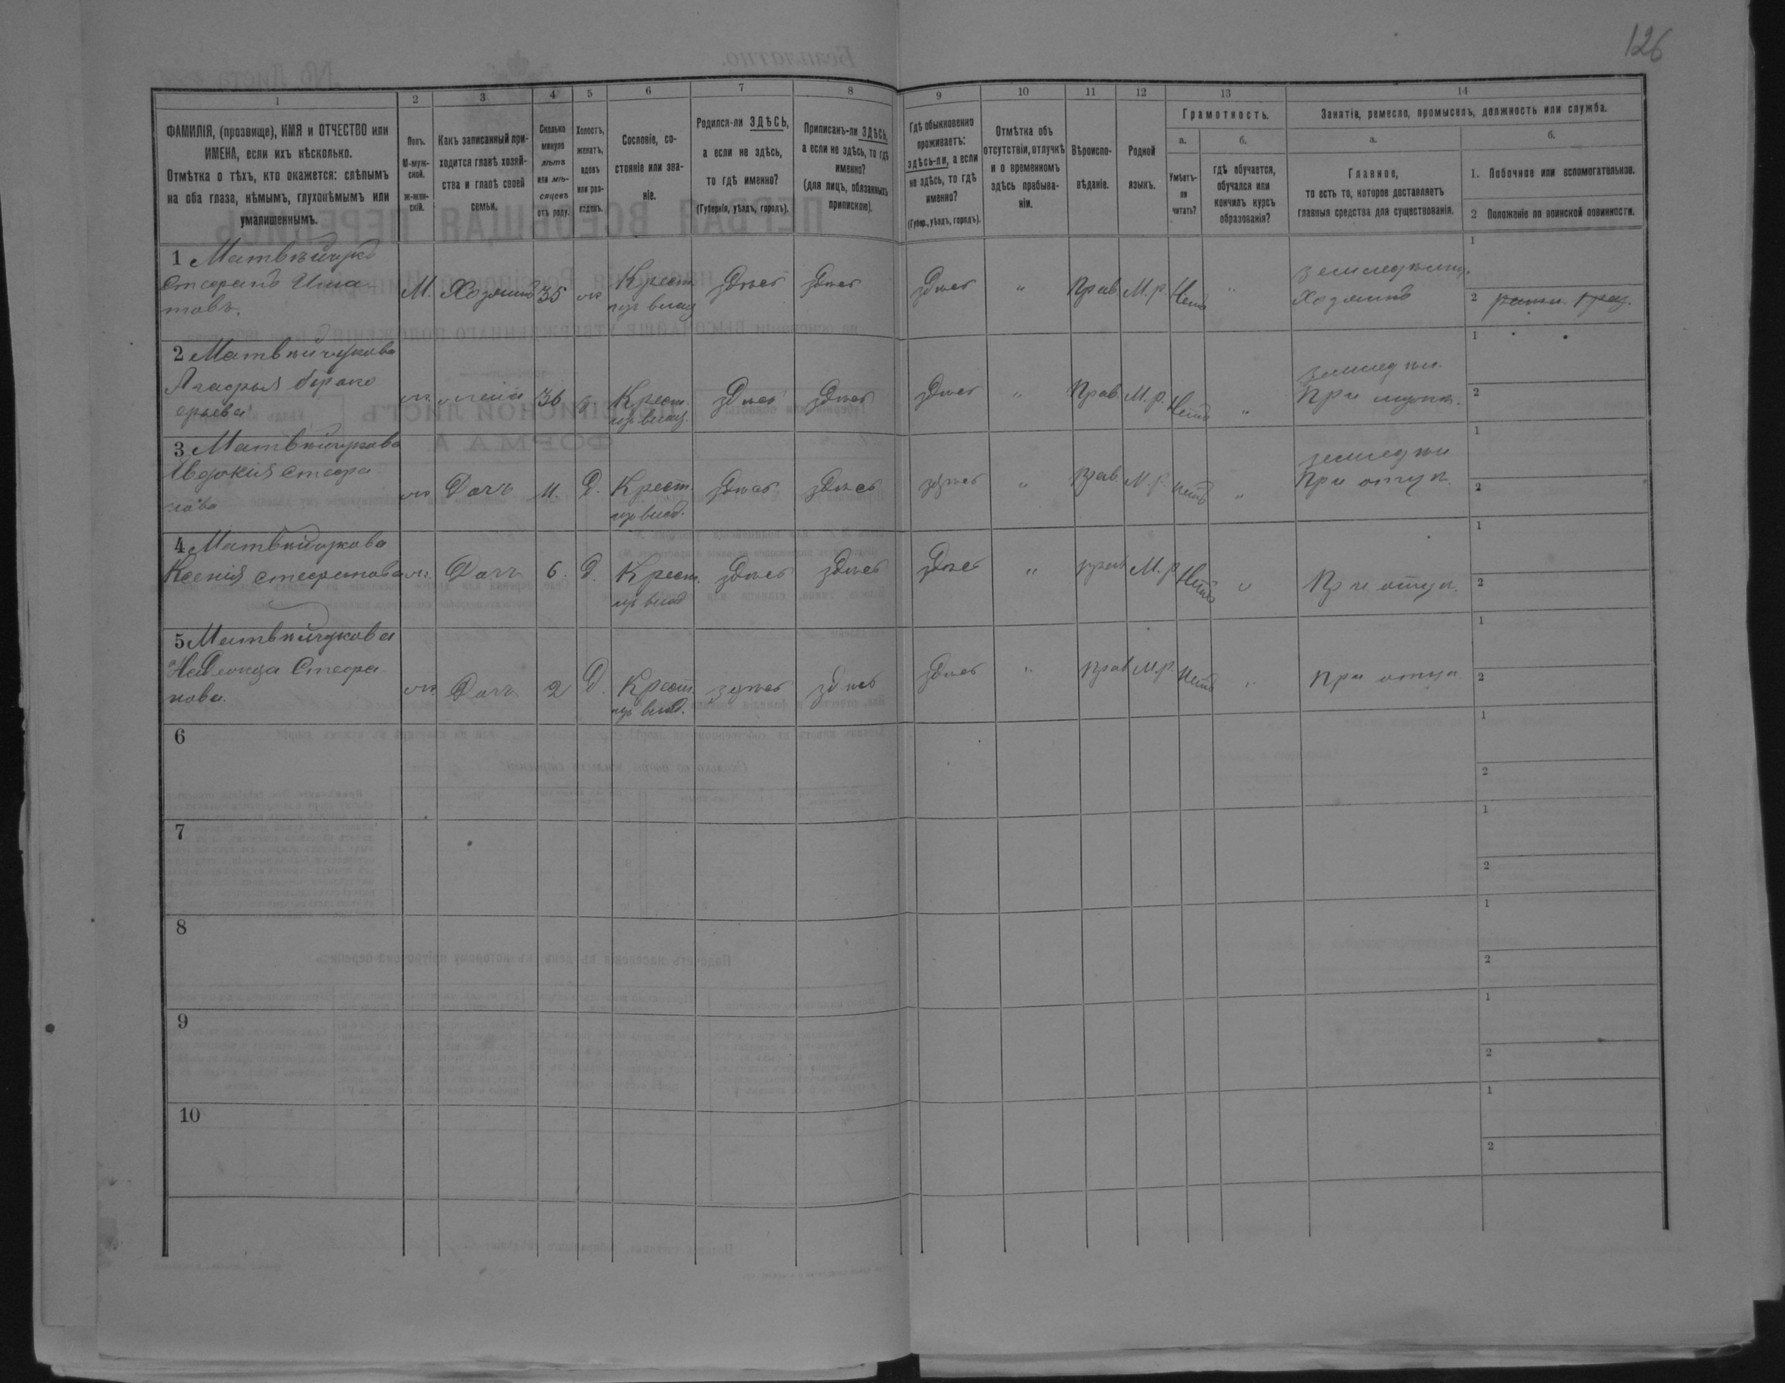 126
1
2
3
4
5
6
7
8
9
10
11
12
13
14
ФАМИЛІЯ, (прозвище), ИМЯ и ОТЧЕСТВО или
ИМЕНА, если ихъ нѣсколько.
Отмѣтка о тѣхъ, кто окажется: слѣпымъ
на оба глаза, нѣмымъ, глухонѣмымъ или
умалишеннымъ.
Полъ.
М-муж-
ской.
Ж-жен-
скій.
Какъ записанный при-
ходится главѣ хозяй-
ства и главѣ своей
семьи.
Сколько
минуло
лѣтъ
или мѣ-
сяцевъ
отъ роду.
Холостъ,
женатъ,
вдовъ
или раз-
веденъ.
Сословіе, со-
стояніе или зва-
ніе.
Родился-ли ЗДѢСЬ,
а если не здѣсь,
то гдѣ именно?
(Губернія, уѣздъ, городъ).
Приписанъ-ли ЗДѢСЬ,
а если не здѣсь, то гдѣ
именно?
(для лицъ, обязанныхъ
припискою).
Гдѣ обыкновенно
проживаетъ:
здѣсь-ли, а если
не здѣсь, то гдѣ
именно?
(Губер., уѣздъ, городъ).
Отмѣтка объ
отсутствіи, отлучкѣ
и о временномъ
здѣсь пребыва-
ніи.
Вѣроиспо-
вѣданіе.
Родной
языкъ.
Грамотность.
а.
Умѣетъ-
ли
читать?
б.
гдѣ обучается,
обучался или
кончилъ курсъ
образованія?
Занятія, ремесло, промыселъ, должность или служба.
а.
Главное,
то есть то, которое доставляетъ
главныя средства для существованія.
б.
1. Побочное или вспомогательное.
2 Положеніе по воинской повинности.
1 Матвѣйчукъ
Стефанъ Игна
товъ.
М. Хозяинъ 35 Крест. здѣсь здѣсь здѣсь " Прав. М.р. Нетъ "
Хозяинъ
1
2
2 Матвѣйчукова
Агафья
36 Крест. здѣсь здѣсь здѣсь " Прав. М.р. Нетъ "
1
2
3 Матвѣйчукова
Авдокія Стефа
нова
Дочь 11. Д. Крест. здѣсь здѣсь здѣсь " Прав. М.р. Нетъ "
При отцѣ.
1
2
4 Матвѣйчукова
Ксенія Стефанова
Дочь 6. Д. Крест. здѣсь здѣсь здѣсь " прав М.р. Нетъ "
При отцѣ.
1
2
5 Матвѣйчукова
Стефа
нова.
Дочь 2 Д. Крест. здѣсь здѣсь здѣсь " Прав М.р. Нетъ "
При отцѣ
1
2
6
1
2
7
1
2
8
1
2
9
1
2
10
1
2